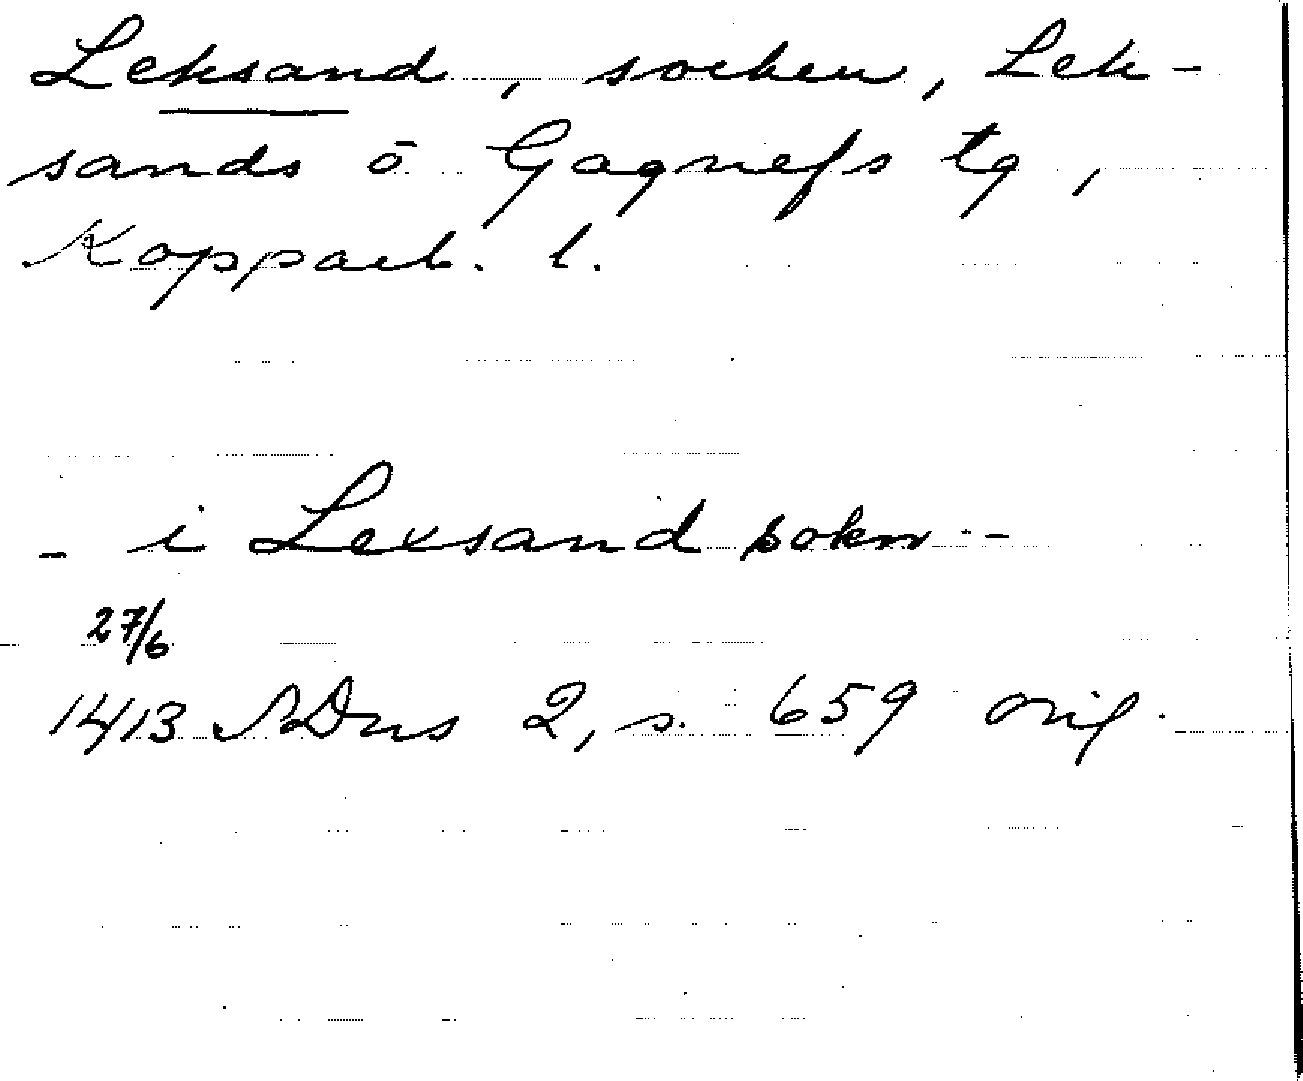 Leksand, socken, Lek-
sands o Gagnefs tg,
Kopparb. l.
- i Lexsand sokn --
27/6
1413 SDns 2, s. 659 orig.